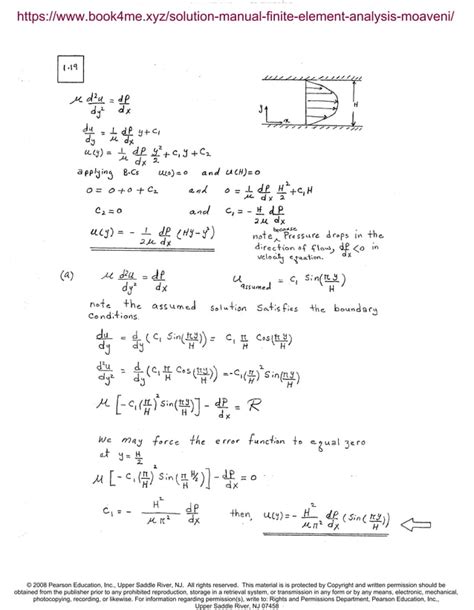 https://www.book4me.xyz/solution-manual-finite-element-analysis-moaveni/
1.19
μ d²u/dy² = dp/dx
du/dy = 1/μ dp/dx y + C₁
u(y) = 1/μ dp/dx y²/2 + C₁y + C₂
y
x
H
applying B.Cs u(0)=0 and u(H)=0
0 = 0 + 0 + C₂ and 0 = 1/μ dp/dx H²/2 + C₁H
C₂ = 0 and C₁ = - H/2μ dp/dx
u(y) = - 1/2μ dp/dx (Hy - y²)
note, because Pressure drops in the
direction of flow, dp/dx < 0 in
velocity equation.
(a) μ d²u/dy² = dp/dx u assumed = C₁ Sin(πy/H)
note the assumed solution satisfies the boundary
conditions.
du/dy = d/dy (C₁ Sin(πy/H)) = C₁ π/H Cos(πy/H)
d²u/dy² = d/dy (C₁ π/H Cos(πy/H)) = -C₁(π/H)² Sin(πy/H)
μ [-C₁(π/H)² Sin(πy/H)] - dp/dx = R
We may force the error function to equal zero
at y = H/2
μ [-C₁(π/H)² Sin(π H/2/H)] - dp/dx = 0
C₁ = - H²/μπ² dp/dx then, u(y) = - H²/μπ² dp/dx (Sin(πy/H))
© 2008 Pearson Education, Inc., Upper Saddle River, NJ. All rights reserved. This material is protected by Copyright and written permission should be
obtained from the publisher prior to any prohibited reproduction, storage in a retrieval system, or transmission in any form or by any means, electronic, mechanical,
photocopying, recording, or likewise. For information regarding permission(s), write to: Rights and Permissions Department, Pearson Education, Inc.,
Upper Saddle River, NJ 07458